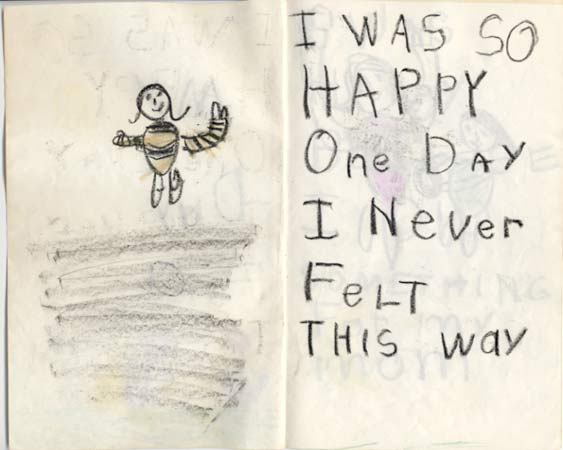 I WAS SO
HAPPY
One DAY
I Never
FeLT
THIS way